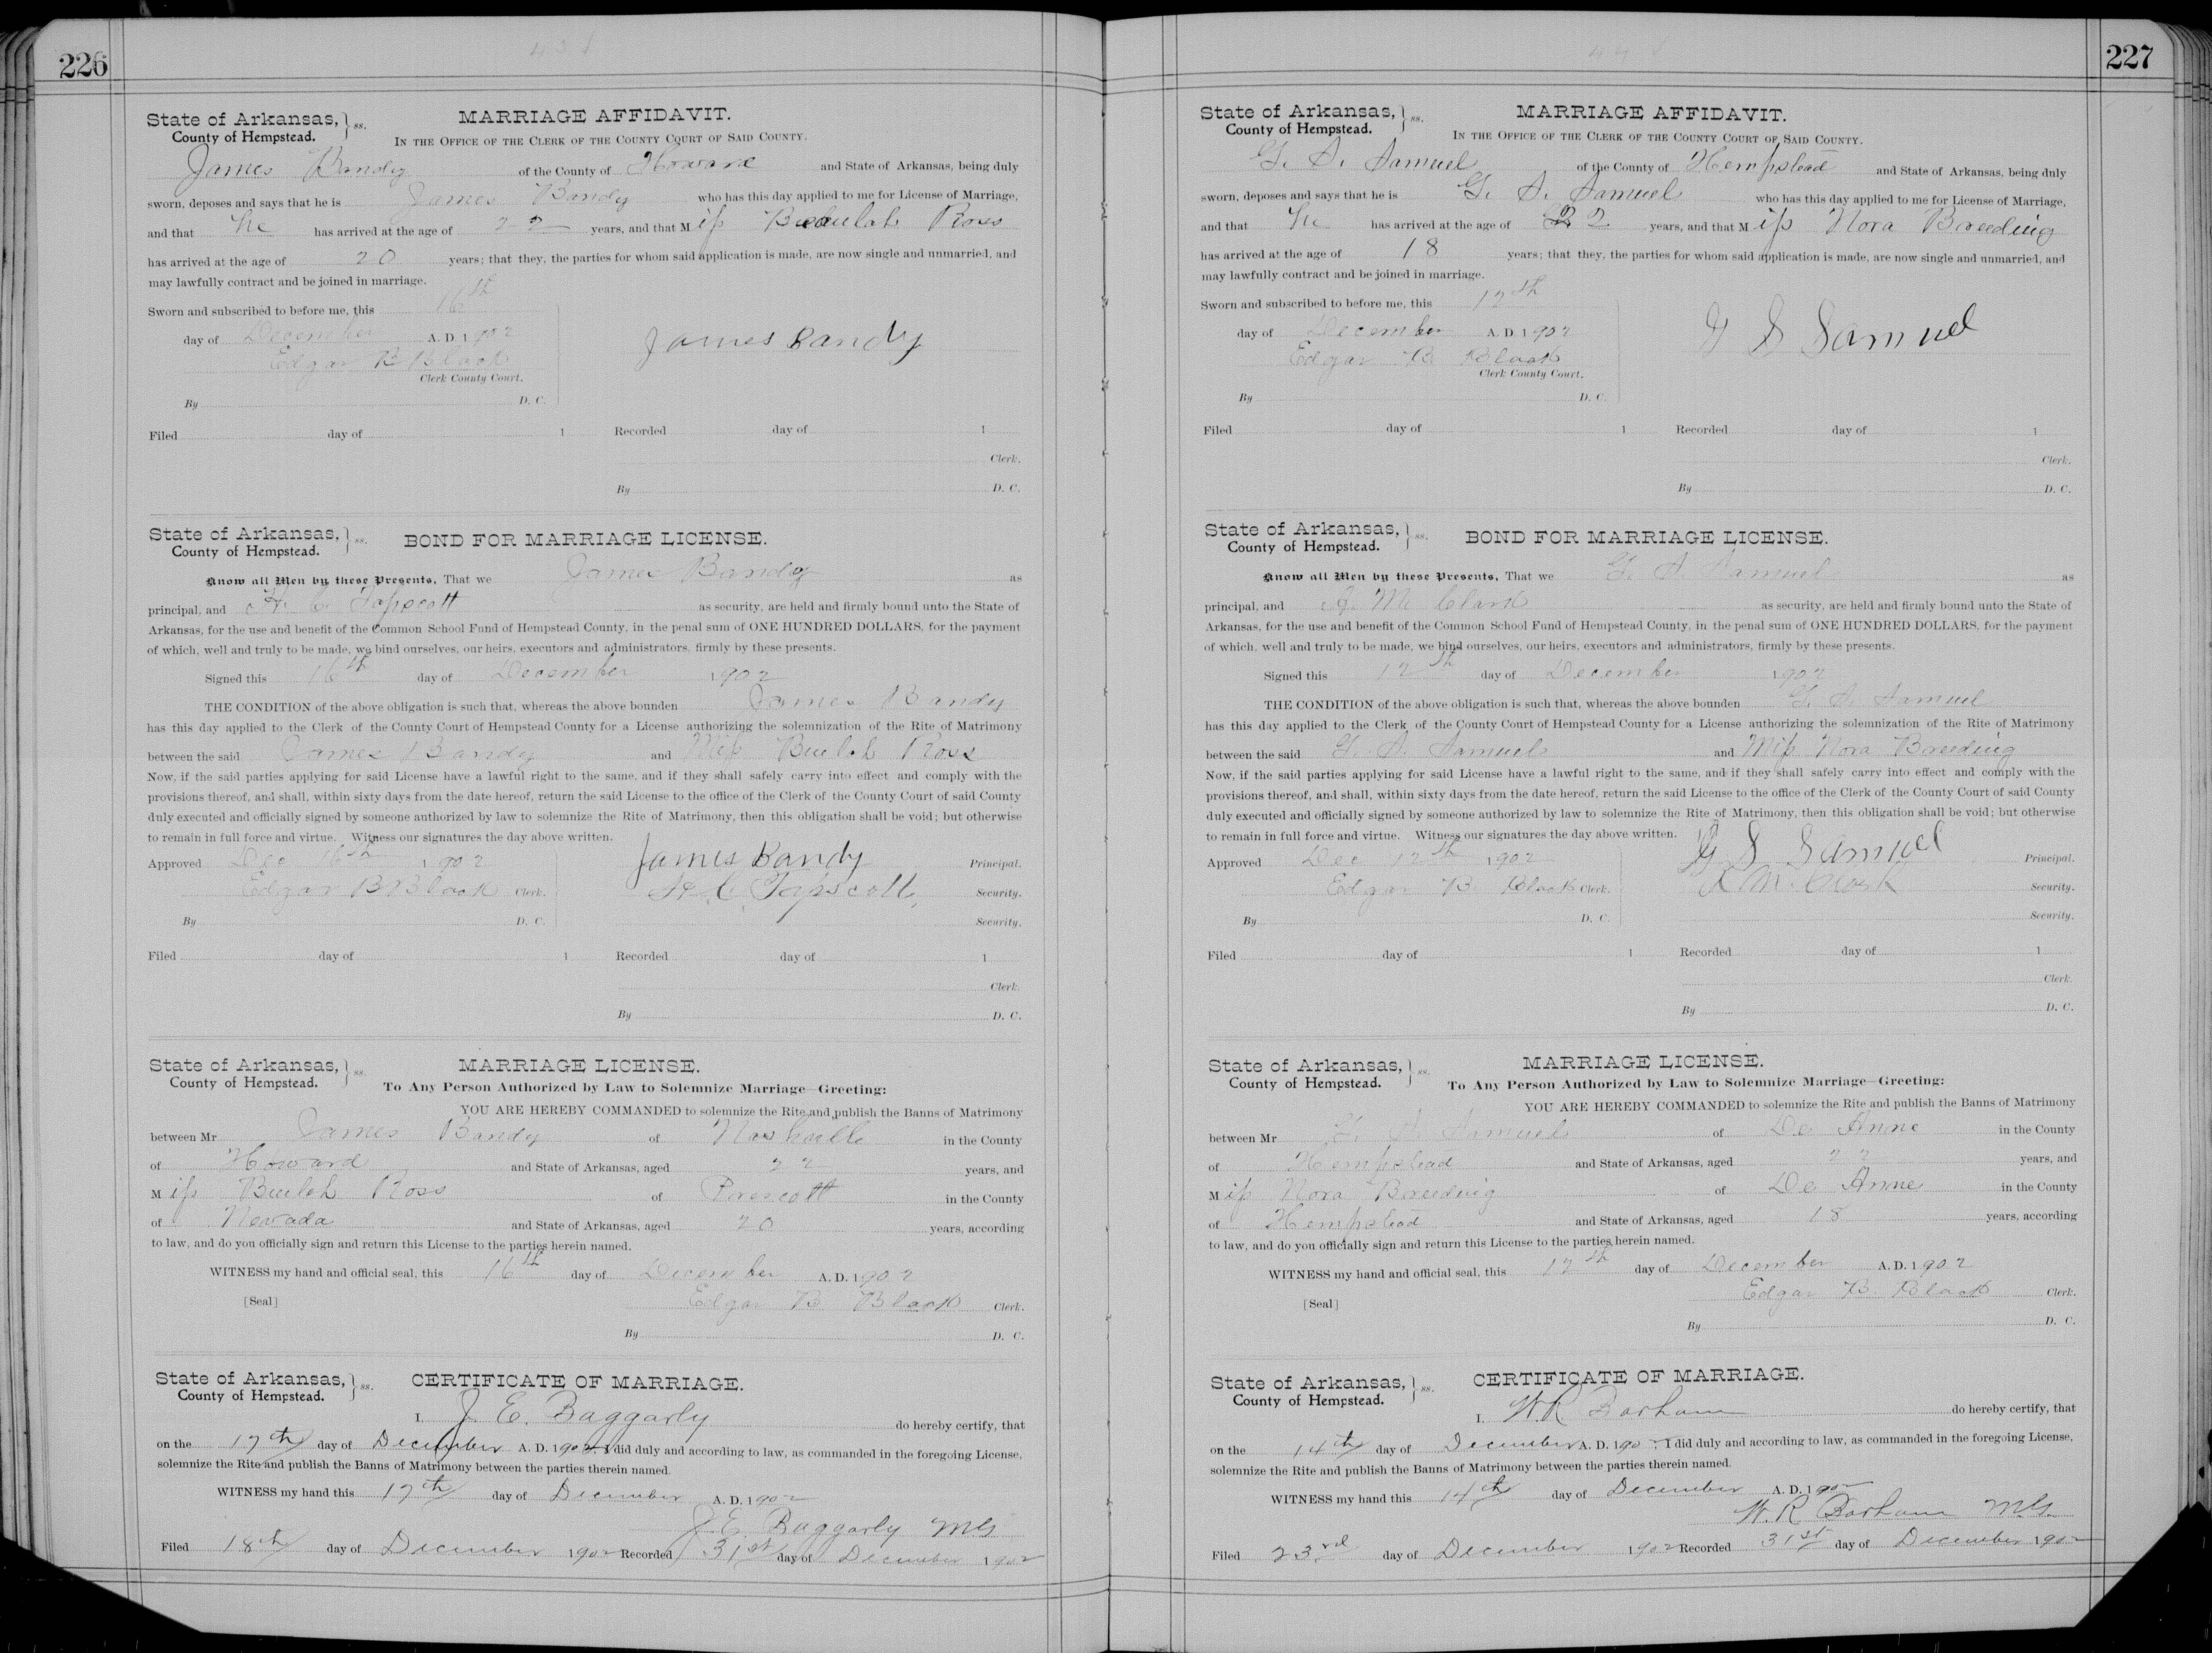 226
State of Arkansas, } ss. MARRIAGE AFFIDAVIT.
County of Hempstead. IN THE OFFICE OF THE CLERK OF THE COUNTY COURT OF SAID COUNTY.
James Bandy of the County of Howard and State of Arkansas, being duly
sworn, deposes and says that he is James Bandy who has this day applied to me for License of Marriage,
and that he has arrived at the age of 22 years, and that Miss Beulah Ross
has arrived at the age of 20 years; that they, the parties for whom said application is made, are now single and unmarried, and
may lawfully contract and be joined in marriage.
Sworn and subscribed to before me, this 16th
day of December A. D. 1902 James Bandy
Edgar B Black
Clerk County Court.
By D. C.
Filed day of 1 Recorded day of 1
Clerk.
By D. C.
State of Arkansas, } ss. BOND FOR MARRIAGE LICENSE.
County of Hempstead.
Know all Men by these Presents, That we James Bandy as
principal, and H. C. Tapscott as security, are held and firmly bound unto the State of
Arkansas, for the use and benefit of the Common School Fund of Hempstead County, in the penal sum of ONE HUNDRED DOLLARS, for the payment
of which, well and truly to be made, we bind ourselves, our heirs, executors and administrators, firmly by these presents.
Signed this 16th day of December 1902
THE CONDITION of the above obligation is such that, whereas the above bounden James Bandy
has this day applied to the Clerk of the County Court of Hempstead County for a License authorizing the solemnization of the Rite of Matrimony
between the said James Bandy and Miss Beulah Ross
Now, if the said parties applying for said License have a lawful right to the same, and if they shall safely carry into effect and comply with the
provisions thereof, and shall, within sixty days from the date hereof, return the said License to the office of the Clerk of the County Court of said County
duly executed and officially signed by someone authorized by law to solemnize the Rite of Matrimony, then this obligation shall be void; but otherwise
to remain in full force and virtue. Witness our signatures the day above written.
Approved Dec 16th 1902 James Bandy Principal.
Edgar B Black Clerk. H. C. Tapscott Security.
By D. C. Security.
Filed day of 1 Recorded day of 1
Clerk.
By D. C.
State of Arkansas, } ss. MARRIAGE LICENSE.
County of Hempstead. To Any Person Authorized by Law to Solemnize Marriage—Greeting:
YOU ARE HEREBY COMMANDED to solemnize the Rite and publish the Banns of Matrimony
between Mr James Bandy of Nashville in the County
of Howard and State of Arkansas, aged 22 years, and
Miss Beulah Ross of Prescott in the County
of Nevada and State of Arkansas, aged 20 years, according
to law, and do you officially sign and return this License to the parties herein named.
WITNESS my hand and official seal, this 16th day of December A. D. 1902
[Seal] Edgar B. Black Clerk.
By D. C.
State of Arkansas, } ss. CERTIFICATE OF MARRIAGE.
County of Hempstead.
I, J. E. Baggarly do hereby certify, that
on the 17th day of December A. D. 1902 I did duly and according to law, as commanded in the foregoing License,
solemnize the Rite and publish the Banns of Matrimony between the parties therein named.
WITNESS my hand this 17th day of December A. D. 1902
J. E. Baggarly MG
Filed 18th day of December 1902 Recorded 31st day of December 1902
227
State of Arkansas, } ss. MARRIAGE AFFIDAVIT.
County of Hempstead. IN THE OFFICE OF THE CLERK OF THE COUNTY COURT OF SAID COUNTY.
G. S. Samuel of the County of Hempstead and State of Arkansas, being duly
sworn, deposes and says that he is G. S. Samuel who has this day applied to me for License of Marriage,
and that he has arrived at the age of 22 years, and that Miss Nora Breeding
has arrived at the age of 18 years; that they, the parties for whom said application is made, are now single and unmarried, and
may lawfully contract and be joined in marriage.
Sworn and subscribed to before me, this 12th
day of December A. D. 1902 G S Samuel
Edgar B. Black
Clerk County Court.
By D. C.
Filed day of 1 Recorded day of 1
Clerk.
By D. C.
State of Arkansas, } ss. BOND FOR MARRIAGE LICENSE.
County of Hempstead.
Know all Men by these Presents, That we G. S. Samuel as
principal, and M. Clark as security, are held and firmly bound unto the State of
Arkansas, for the use and benefit of the Common School Fund of Hempstead County, in the penal sum of ONE HUNDRED DOLLARS, for the payment
of which, well and truly to be made, we bind ourselves, our heirs, executors and administrators, firmly by these presents.
Signed this 12th day of December 1902
THE CONDITION of the above obligation is such that, whereas the above bounden G. S. Samuel
has this day applied to the Clerk of the County Court of Hempstead County for a License authorizing the solemnization of the Rite of Matrimony
between the said G. S. Samuel and Miss Nora Breeding
Now, if the said parties applying for said License have a lawful right to the same, and if they shall safely carry into effect and comply with the
provisions thereof, and shall, within sixty days from the date hereof, return the said License to the office of the Clerk of the County Court of said County
duly executed and officially signed by someone authorized by law to solemnize the Rite of Matrimony, then this obligation shall be void; but otherwise
to remain in full force and virtue. Witness our signatures the day above written.
Approved Dec 12th 1902 G S Samuel Principal.
Edgar B. Black Clerk. M. Clark Security.
By D. C. Security.
Filed day of 1 Recorded day of 1
Clerk.
By D. C.
State of Arkansas, } ss. MARRIAGE LICENSE.
County of Hempstead. To Any Person Authorized by Law to Solemnize Marriage—Greeting:
YOU ARE HEREBY COMMANDED to solemnize the Rite and publish the Banns of Matrimony
between Mr G. S. Samuel of De Anne in the County
of Hempstead and State of Arkansas, aged 22 years, and
Miss Nora Breeding of De Anne in the County
of Hempstead and State of Arkansas, aged 18 years, according
to law, and do you officially sign and return this License to the parties herein named.
WITNESS my hand and official seal, this 12th day of December A. D. 1902
[Seal] Edgar B. Black Clerk.
By D. C.
State of Arkansas, } ss. CERTIFICATE OF MARRIAGE.
County of Hempstead.
I, W. R. Borham do hereby certify, that
on the 14th day of December A. D. 190 I did duly and according to law, as commanded in the foregoing License,
solemnize the Rite and publish the Banns of Matrimony between the parties therein named.
WITNESS my hand this 14th day of December A. D. 1902
W. R. Borham M.G.
Filed 23rd day of December 1902 Recorded 31st day of December 1902